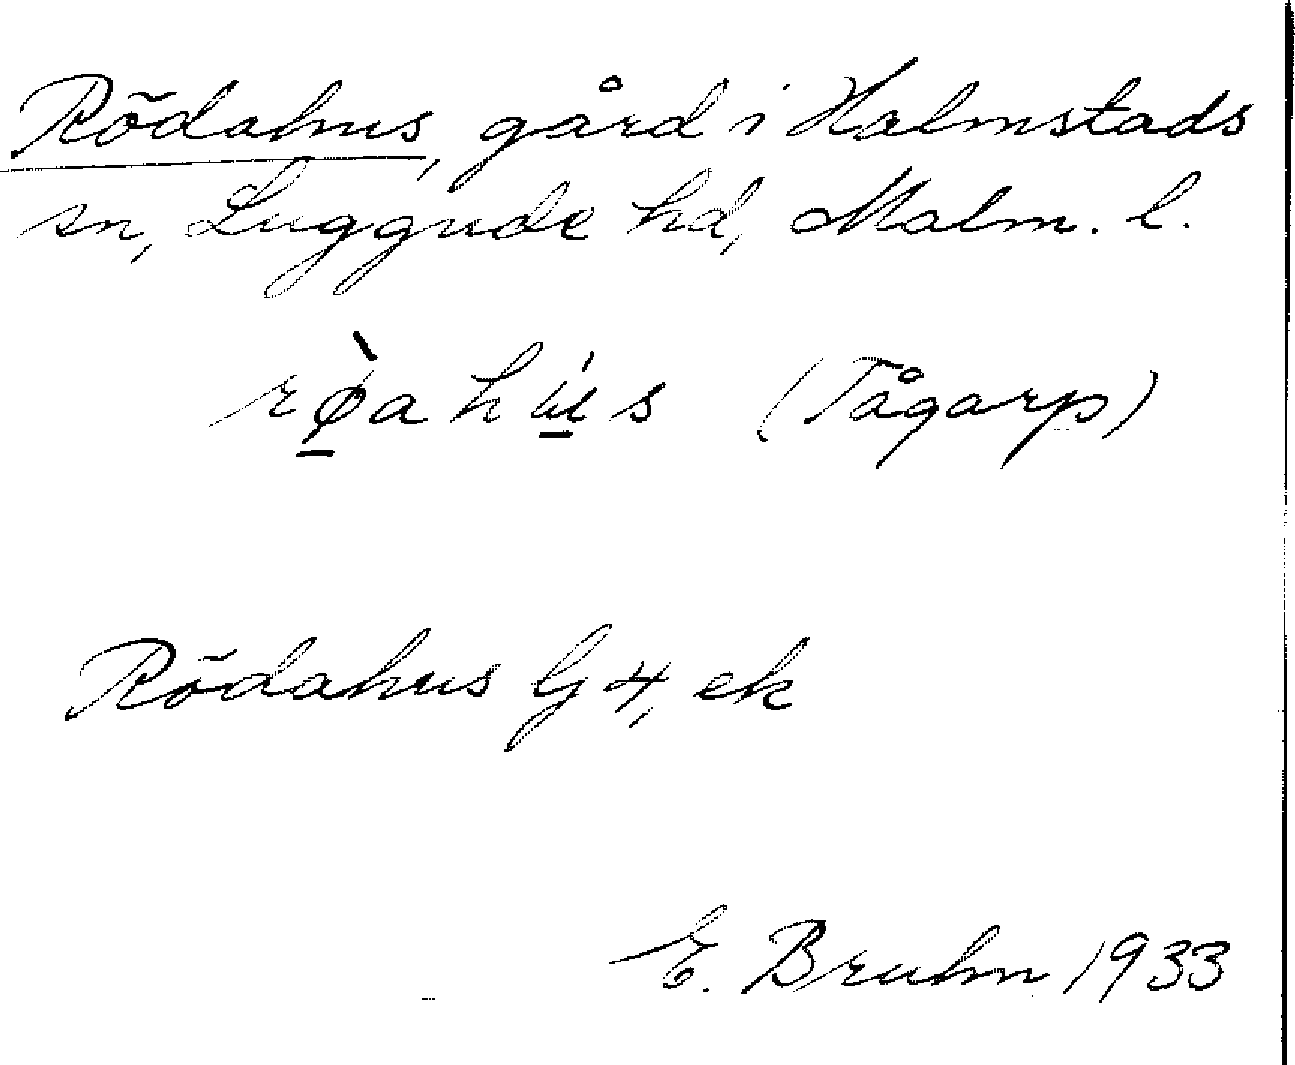 Rödahus, gård i Halmstads
sn, Luggude hd, Malm. l.
rø̲̀a hú̲s (Tågarp)
Rödahus G4, ek
E. Bruhn 1933